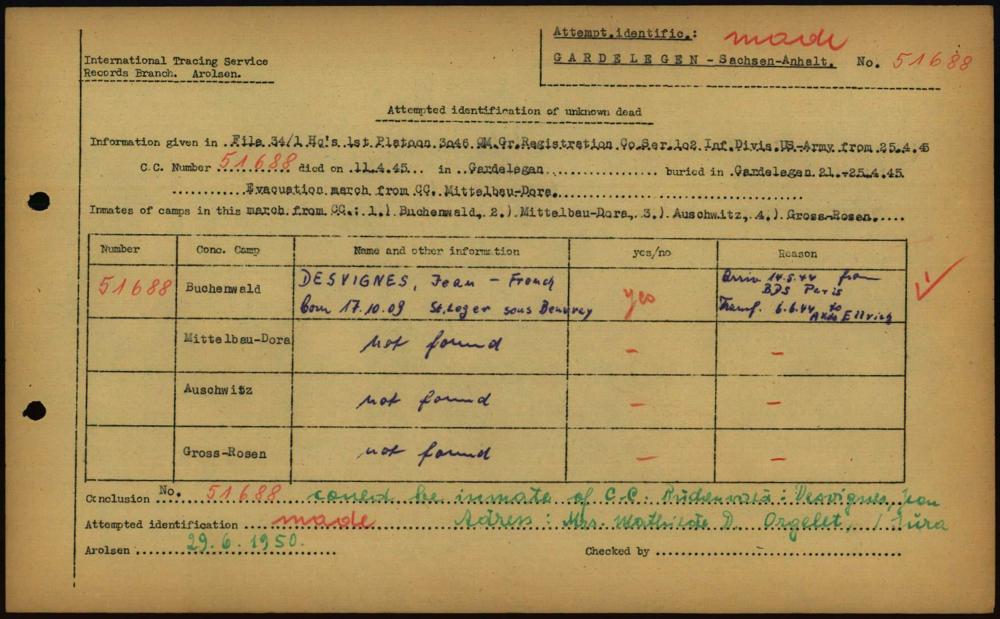 Attempt.identific.: made
International Tracing Service
Records Branch. Arolsen.
GARDELEGEN - Sachsen-Anhalt. No. 51688
Attempted identification of unknown dead
Information given in File 34/1 Hq's 1st Platoon 3046 QM.Gr.Registration Co Ser.102 Inf.Divis.US-Army from 25.4.45
C.C. Number 51688 died on 11.4.45 in Gardelegen buried in Gardelegen 21.-25.4.45
Evacuation march from CC. Mittelbau-Dora.
Inmates of camps in this march from CC.: 1.) Buchenwald, 2.) Mittelbau-Dora, 3.) Auschwitz, 4.) Gross-Rosen.
Number Conc. Camp Name and other information yes/no Reason
51688 Buchenwald DESVIGNES, Jean - French yes Arriv 14.5.44 from
BDS Paris
born 17.10.09 St. Leger sous Beuvray Transf. 6.6.44 to
Akdo Ellrich
Mittelbau-Dora not found - -
Auschwitz not found - -
Gross-Rosen not found - -
Conclusion No. 51688 could be inmate of C.C. Buchenwald: Desvignes, Jean
Attempted identification made Adress: Mrs. Mathilde D. Orgelet, / Jura
Arolsen 29.6.1950. Checked by